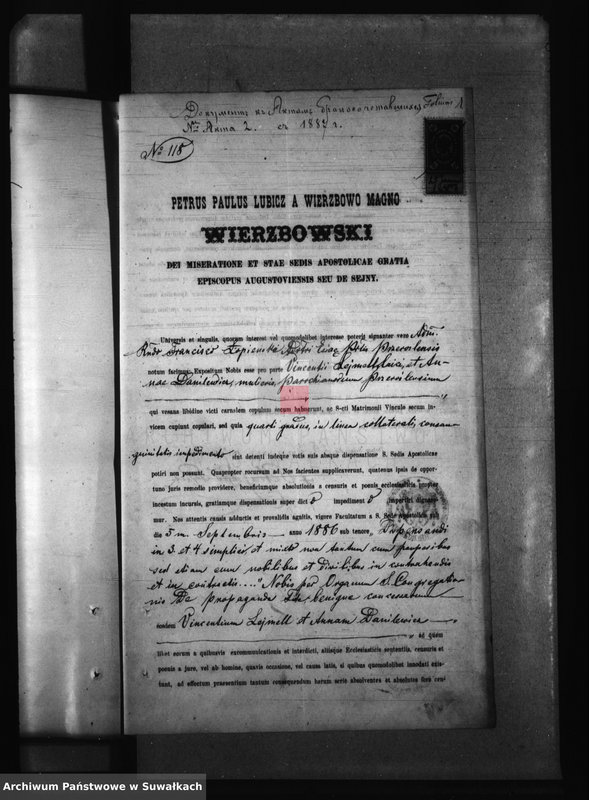 Документъ къ Актамъ бракосочетавшихся Folium 1
№ Акта 2. съ 1887 г.
№ 118
PETRUS PAULUS LUBICZ A WIERZBOWO MAGNO
WIERZBOWSKI
DEI MISERATIONE ET STAE SEDIS APOSTOLICAE GRATIA
EPISCOPUS AUGUSTOVIENSIS SEU DE SEJNY.
Universis et singulis, quorum interest vel quomodolibet interesse poterit signanter vero Adm.
Rndo Francisco
notum facimus, Expositum Nobis esse pro parte Vincentii Lejmell laici, et An-
nae Danilewicz, mulieris, parochianorum
qui vesana libidine victi carnalem copulam secum habuerunt, ac S-cti Matrimonii Vinculo secum in-
vicem cupiunt copulari, sed quia quarti gradus, in linea collaterali, consan-
guinitatis impedimento sint detenti indeque votis suis absque dispensatione S. Sedis Apostolicae
potiri non possunt. Quapropter recursum ad Nos facientes supplicaverunt, quatenus ipsis de oppor-
tuno juris remedio providere, beneficiumque absolutionis a censuris et poenis ecclesiasticis propter
incestum incursis, gratiamque dispensationis super dicto impedimento impertiri dignare-
mur. Nos attentis causis adductis et praevalidis agnitis, vigore Facultatum a S. Sede Apostolica sub
die 5 m. Septembris anno 1886 sub tenore „Dispensandi
in 3. et 4 simplici et mixto non tantum cum pauperibus
sed etiam cum nobilibus et divitibus in contrahendis
et in contractis...." Nobis per Organum S. Congregatio-
nis De propaganda Fide benigne concessarum
eosdem Vincentium Lejmell et Annam Danilewicz
ad quem
libet eorum a quibusvis excommunicationis et interdicti, aliisque Ecclesiasticis sententiis, censuris et
poenis a jure, vel ab homine, quavis occasione, vel causa latis, si quibus quomodolibet innodati exis-
tunt, ad effectum praesentium tantum consequendum harum serie absolventes et absolutos fore cen-
Archiwum Państwowe w Suwałkach